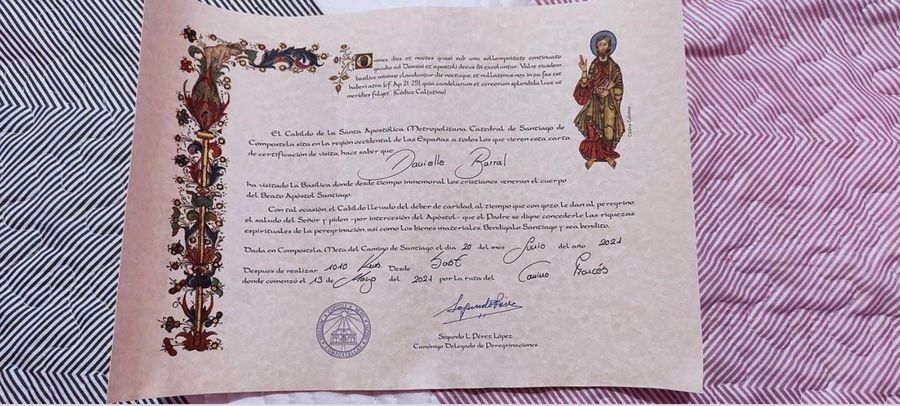 Omnes dies et noctes quasi sub una sollempnitate continuato
gaudio ad Domini et apostoli decus ibi excoluntur. Valve eiusdem
basilice minime clauduntur die noctuque, et nullatenus nox in ea fas est
haberi atra (cf. Ap 21, 25) quia candelarum et cereorum splendida luce ut
meridies fulget" (Códice Calixtino)
Códice Calixtino
El Cabildo de la Santa Apostólica Metropolitana Catedral de Santiago de
Compostela sita en la región occidental de las Españas, a todos los que vieren esta carta
de certificación de visita, hace saber que:
Danielle Barral
ha visitado la Basílica donde desde tiempo inmemorial los cristianos veneran el cuerpo
del Beato Apóstol Santiago.
Con tal ocasión el Cabildo llevado del deber de caridad, al tiempo que con gozo, le dan al peregrino
el saludo del Señor y piden -por intercesión del Apóstol- que el Padre se digne concederle las riquezas
espirituales de la peregrinación, así como los bienes materiales. Bendígalo Santiago y sea bendito.
Dada en Compostela, Meta del Camino de Santiago, el día 20 del mes Junio del año 2021
Después de realizar 1010 Kms. Desde Bost
donde comenzó el 13 de Mayo del 2021 por la ruta del Camino Francés
COMPOSTELLAE
Segundo L. Pérez López
Canónigo Delegado de Peregrinaciones